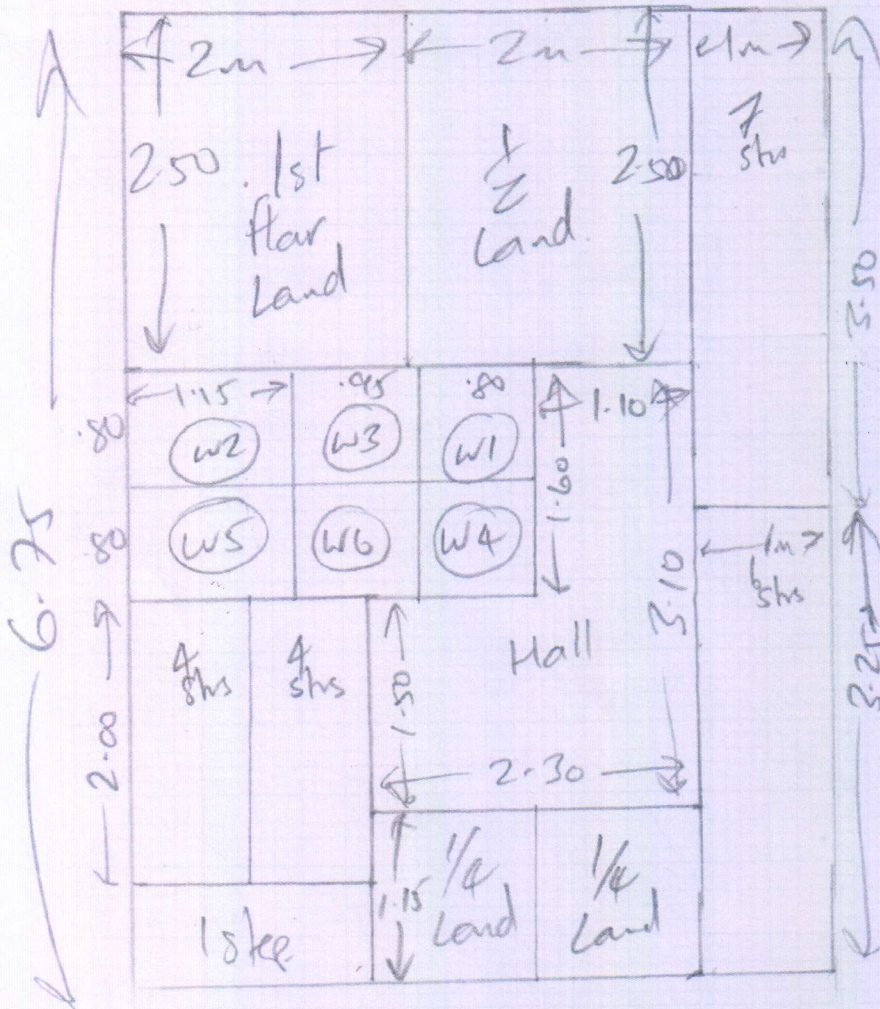 2m 2m 1m
2.50 1st flar Land
1/2 Land 2.50
7 strs
3.50
6.75
1.15 .95 .80 1.10
.80 W2 W3 W1
1.60
.80 W5 W6 W4
3.10
1m
6 strs
3.25
4 strs
4 strs
2.00
1.50
Hall
2.30
1.15
1/4 Land
1/4 Land
1 step